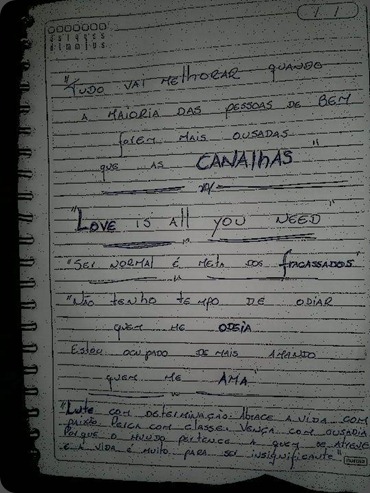 "Tudo vai melhorar quando
a maioria das pessoas de bem
forem mais ousadas
que as CANALHAS"
"Love is all you need"
"Sei normal é meta dos fracassados"
"Não tenho tempo de odiar
quem me odeia
Estou ocupado de mais amando
quem me ama"
"Lute com determinação. Abrace a vida com
paixão. Perca com classe. Vença com ousadia
Porque o mundo pertence a quem se atreve
e a vida é muito para ser insignificante"